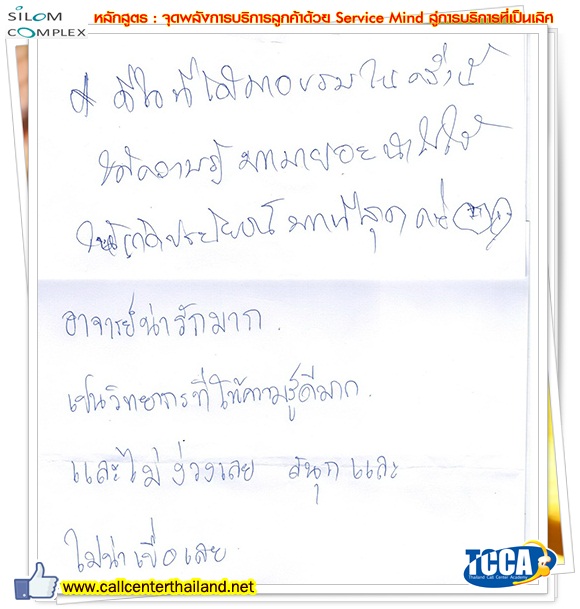 SILOM
COMPLEX
หลักสูตร : จุดพลังการบริการลูกค้าด้วย Service Mind สู่การบริการที่เป็นเลิศ
ดีใจที่ได้มาอบรมในครั้งนี้
ได้ความรู้มากมายจะนำไปใช้
ให้เกิดประโยชน์มากที่สุด
อาจารย์น่ารักมาก
เป็นวิทยากรที่ให้ความรู้ดีมาก
และไม่ง่วงเลย สนุกและ
ไม่น่าเบื่อเลย
www.callcenterthailand.net
TCCA
Thailand Call Center Academy